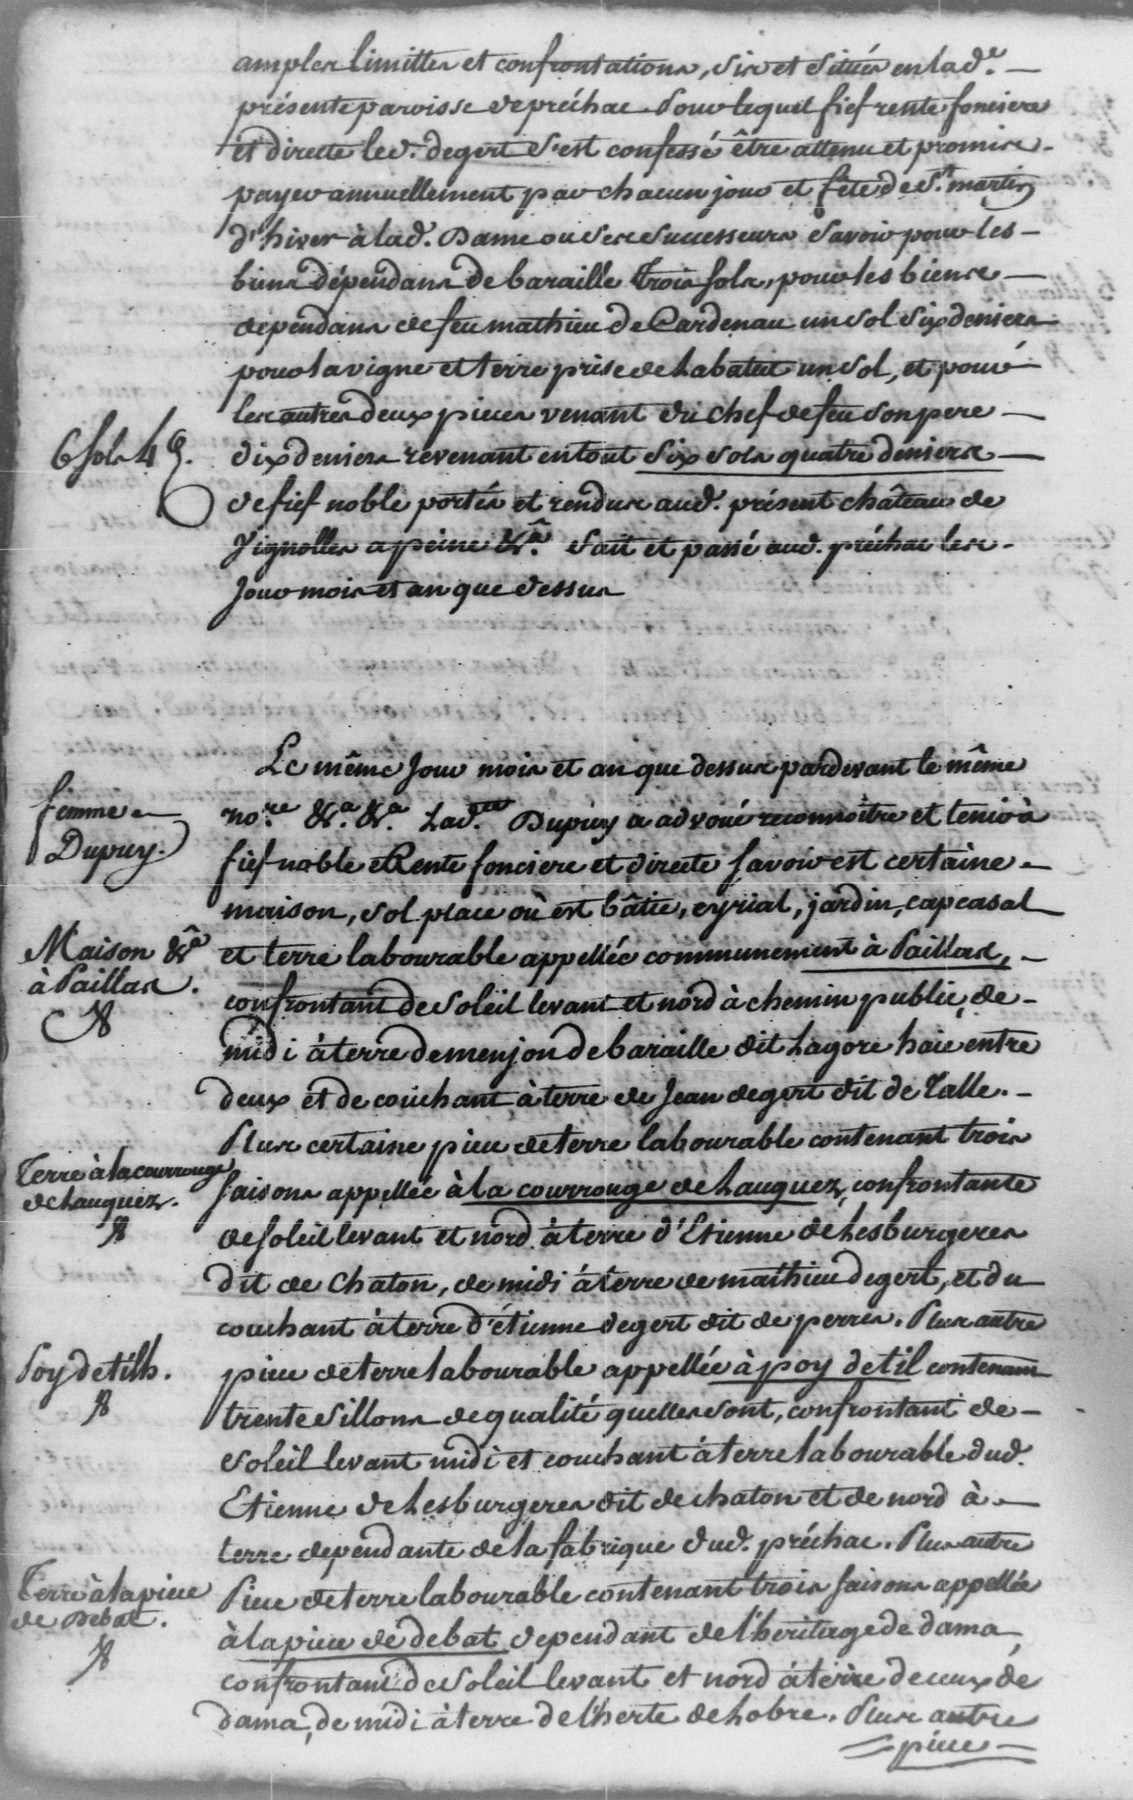 amples limittes et confrontations, sis et situés en lad.e
présente paroisse de préchac Pour lequel fief rente fonciere
et directe led. degert S'est confessé être attenu et promis
payer annuellement par chacun jour et fête de St. martin
d'hiver à lad. Dame ou ses successeurs Savoir pour les
biens dépendans de baraille trois sols, pour les biens
dépendans de feu mathieu de Cardenau un sol Six deniers
pour la vigne et terre prise de Labatut un sol, et pour
les autres deux pieces venant du chef de feu Son pere
6 sols 4 d.
dix deniers revenant en tout Six sols quatre deniers
de fief noble portés et rendus aud. présent château de
Vignolles a peine &a. fait et passé aud. préchac les
Jour mois et an que dessus
Le même Jour mois et an que dessus pardevant le même
femme
Dupuy.
no.re &a. &a. Lad.e Dupuy a advoué reconnoitre et tenir à
fief noble Rente fonciere et directe Savoir est certaine
maison, sol place où est bâtie, eyrial, jardin, capcasal
Maison &a
à Paillas.
et terre labourable appellée communement à Paillas,
confrontant de soleil levant et nord à chemin public, de
midi à terre de menjon de baraille dit Lagore haie entre
deux et de couchant à terre de Jean degert dit de Talle.
Plus certaine piece de terre labourable contenant trois
Terre à la courrouge
de Lauquez.
saisons appellée à la courrouge de Lauquez, confrontante
de soleil levant et nord à terre d'Etienne de Lesburgeres
dit de Chaton, de midi à terre de mathieu degert, et du
couchant à terre d'étienne degert dit de perres. Plus autre
Poy de tilh.
piece de terre labourable appellée à poy de til contenant
trente Sillons de qualité quelles sont, confrontant de
soleil levant midi et couchant à terre labourable dud.
Etienne de Lesburgeres dit de chaton et de nord à
terre dependante de la fabrique dud. préchac. Plus autre
Terre à la piece
de Debat.
Piece de terre labourable contenant trois saisons appellée
à la piece de debat dependant de l'heritage de dama,
confrontant de soleil levant et nord à terre de ceux de
dama, de midi à terre de l'herte de Lobre. Plus autre
piece